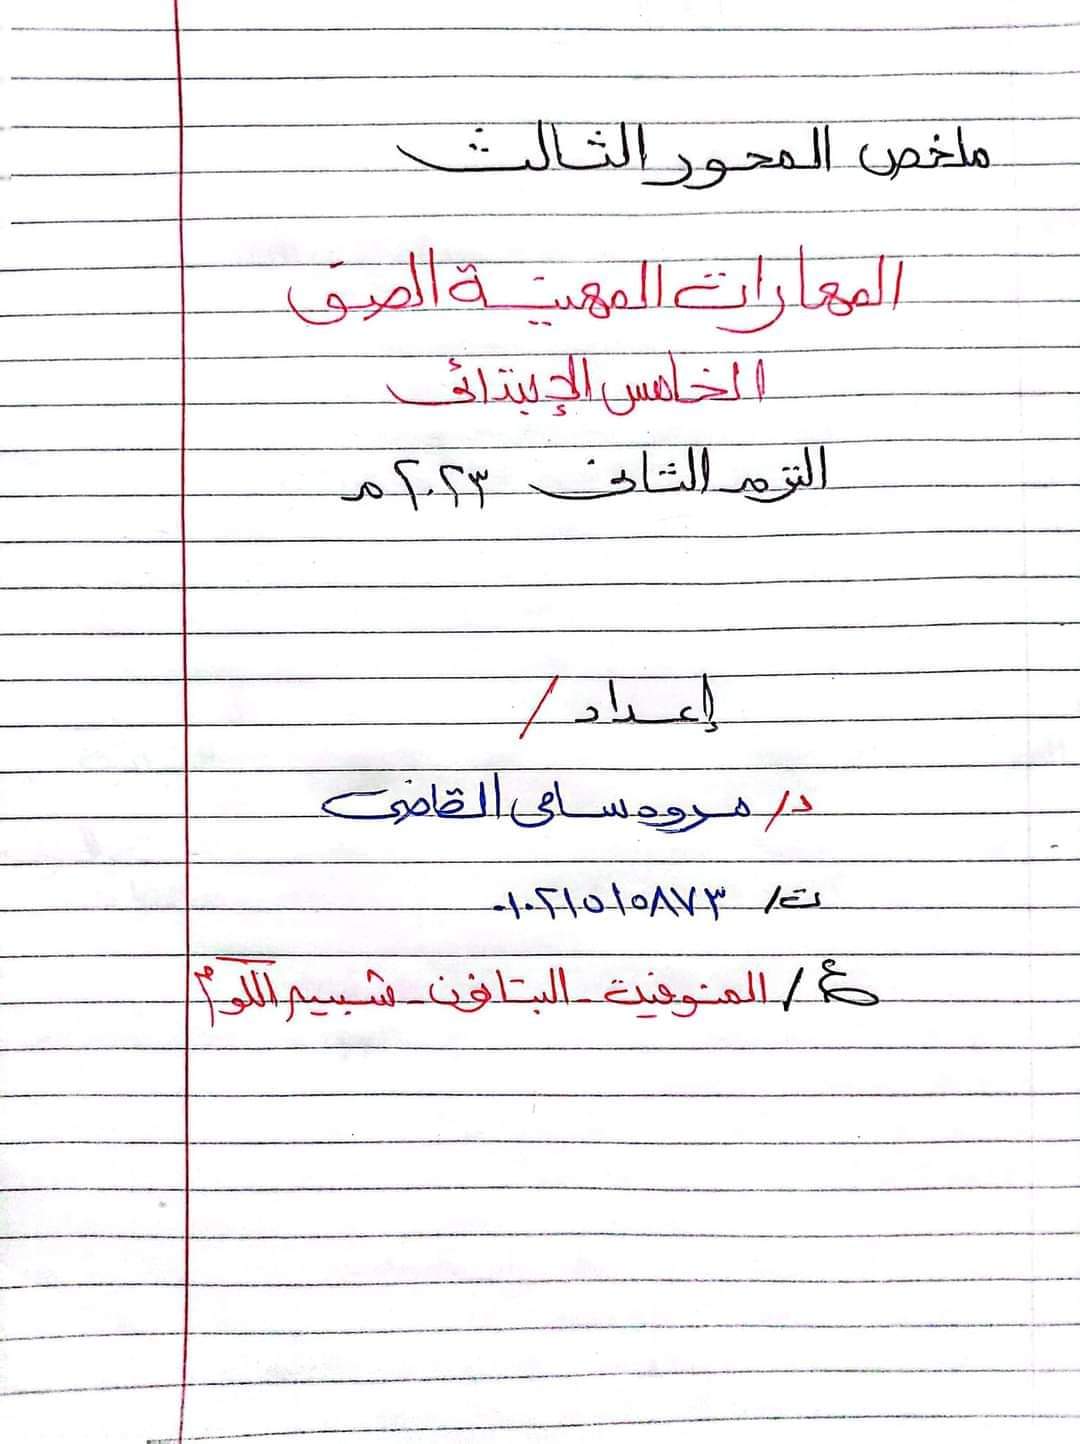 ملخص المحور الثالث
المهارات المهنية الصف
الخامس الإبتدائى
الترم الثانى ٢٠٢٣ م
إعداد /
د/ مروه سامى القاضى
ت/ ٠١٠٢١٥١٥٨٧٣
ع/ المنوفية - البتانون - شبين الكوم